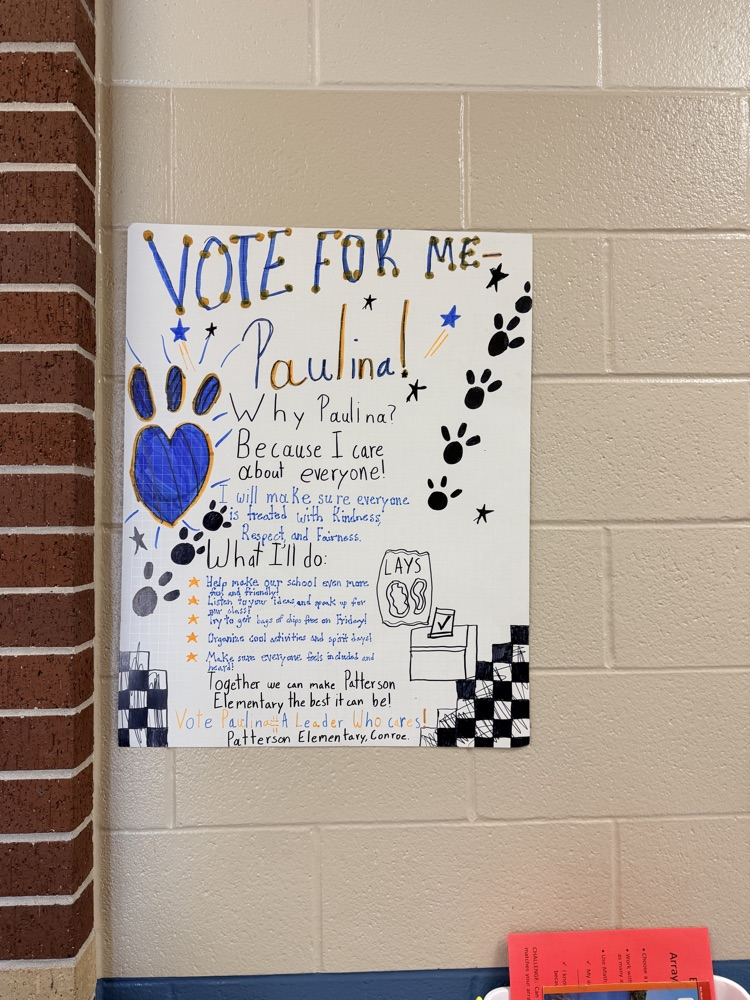 VOTE FOR ME-
Paulina!
Why Paulina?
Because I care
about everyone!
I will make sure everyone
is treated with Kindness,
Respect, and Fairness.
What I'll do:
Help make our school even more
fun and friendly!
Listen to your ideas, and speak up for
our class!
Try to get bags of chips free on Friday!
Organize cool activities and spirit days!
Make sure everyone feels included and
heard!
LAYS
Together we can make Patterson
Elementary the best it can be!
Vote Paulina A Leader Who cares!
Patterson Elementary, Conroe.
Array
• Choose a
as many
• Work wi
• Use Math
✓ My a
✓ I kno
beca
CHALLENGE: Can
matches your arra